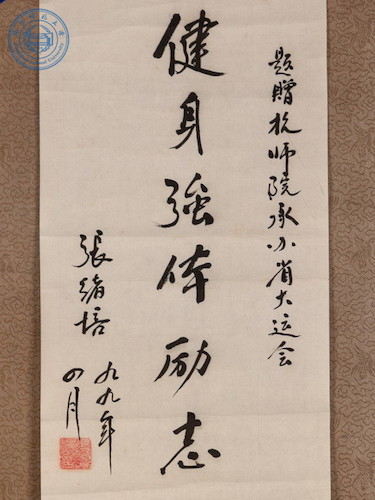 题赠杭师院承办省大运会
健身強体励志
張緒培
九九年
四月